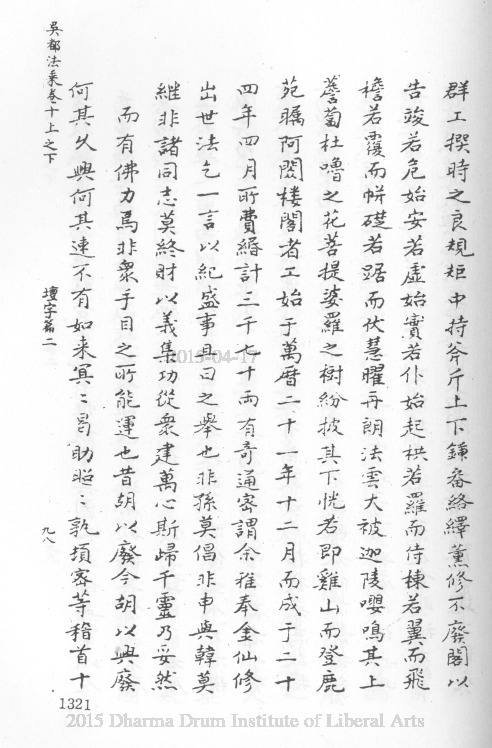 群工撰時之良規矩中持斧斤上下鍾畚絡繹薰修不廢閣以
告竣若危始安若虛始實若仆始起栱若羅而侍棟若翼而飛
檐若覆而帡礎若踞而伏慧曜再朗法雲大被迦陵嚶鳴其上
薝蔔杜嚕之花菩提婆羅之樹紛披其下恍若即雞山而登鹿
苑矚阿閦樓閣者工始于萬曆二十一年十二月而成于二十
四年四月所費緡計三千七十兩有奇通密謂余雅奉金仙修
出世法乞一言以紀盛事且曰之舉也非孫莫倡非申與韓莫
繼非諸同志莫終財以義集功從衆建萬心斯歸千靈乃妥然
而有佛力焉非衆手目之所能運也昔胡以廢今胡以興廢
何其久興何其速不有如来冥冥曷助昭昭孰填密等稽首十
吳都法乘卷十上之下
壇宇篇二
九八
1321
2015-04-17
2015 Dharma Drum Institute of Liberal Arts